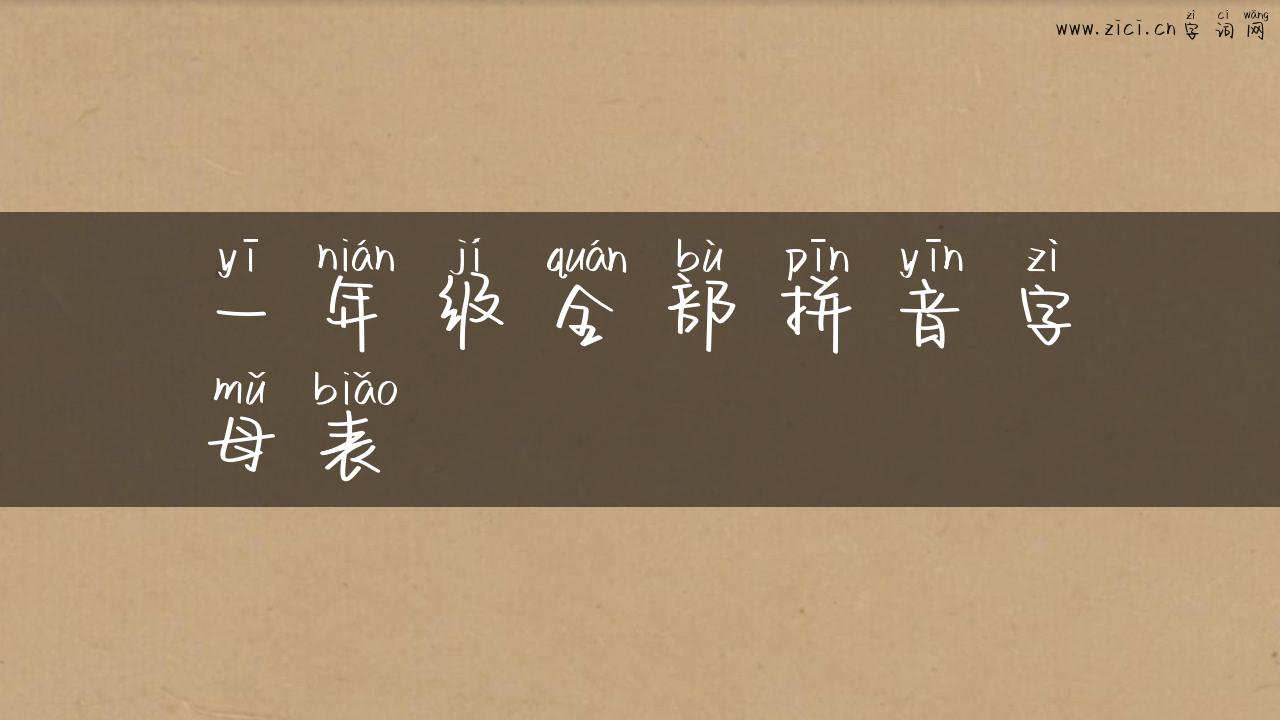 zì cí wǎng
www.zici.cn 字词网
yī nián jí quán bù pīn yīn zì
一年级全部拼音字
mǔ biǎo
母表